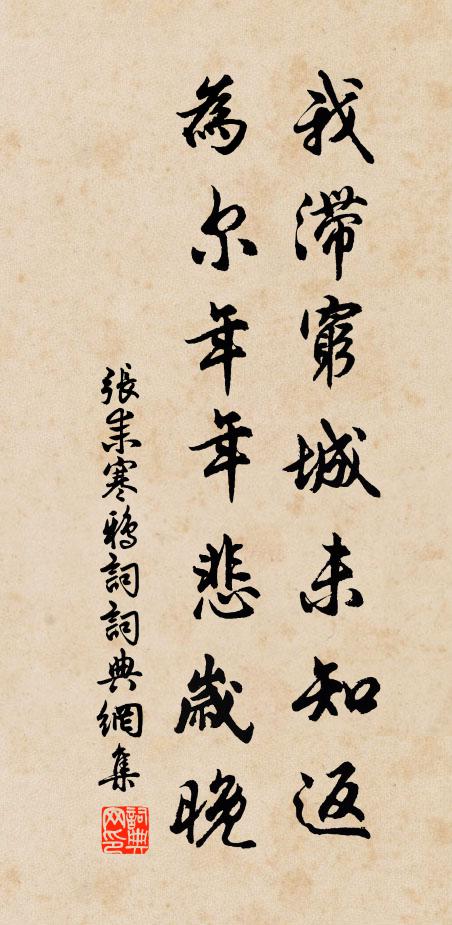 我滯窮城未知返
為尔年年悲歲晚
張耒寒鴉詞詞典網集
詞典網印